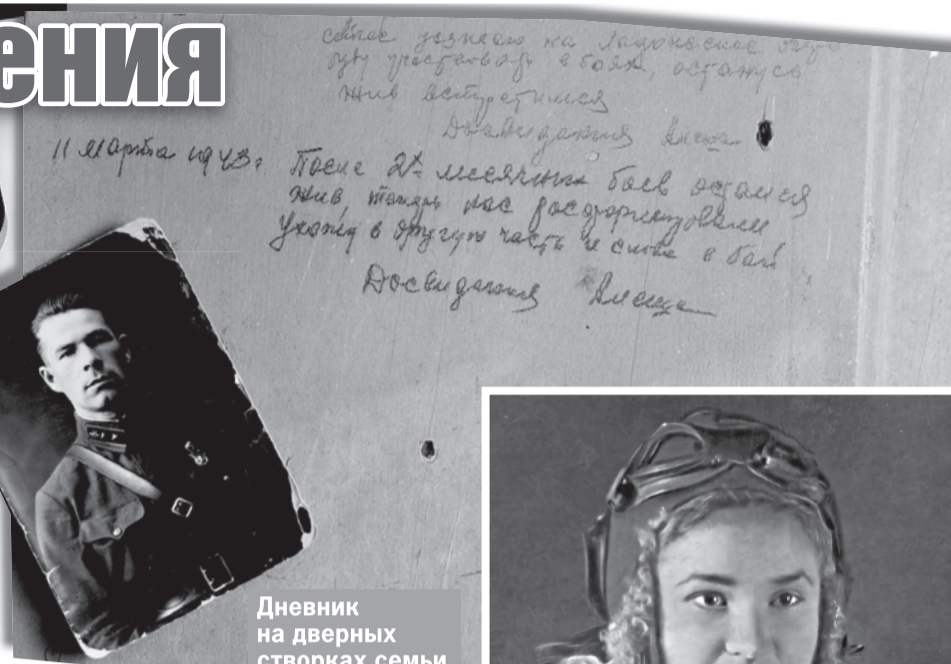 ения
сейчас уезжаю на
буду участвовать в боях, останусь
жив встретимся
Досвидания
11 марта 1943г. После 2х месячных боев остался
жив теперь нас расформировали
Ухожу в другую часть и снова в бой
Досвидания
Дневник
на дверных
створках семьи